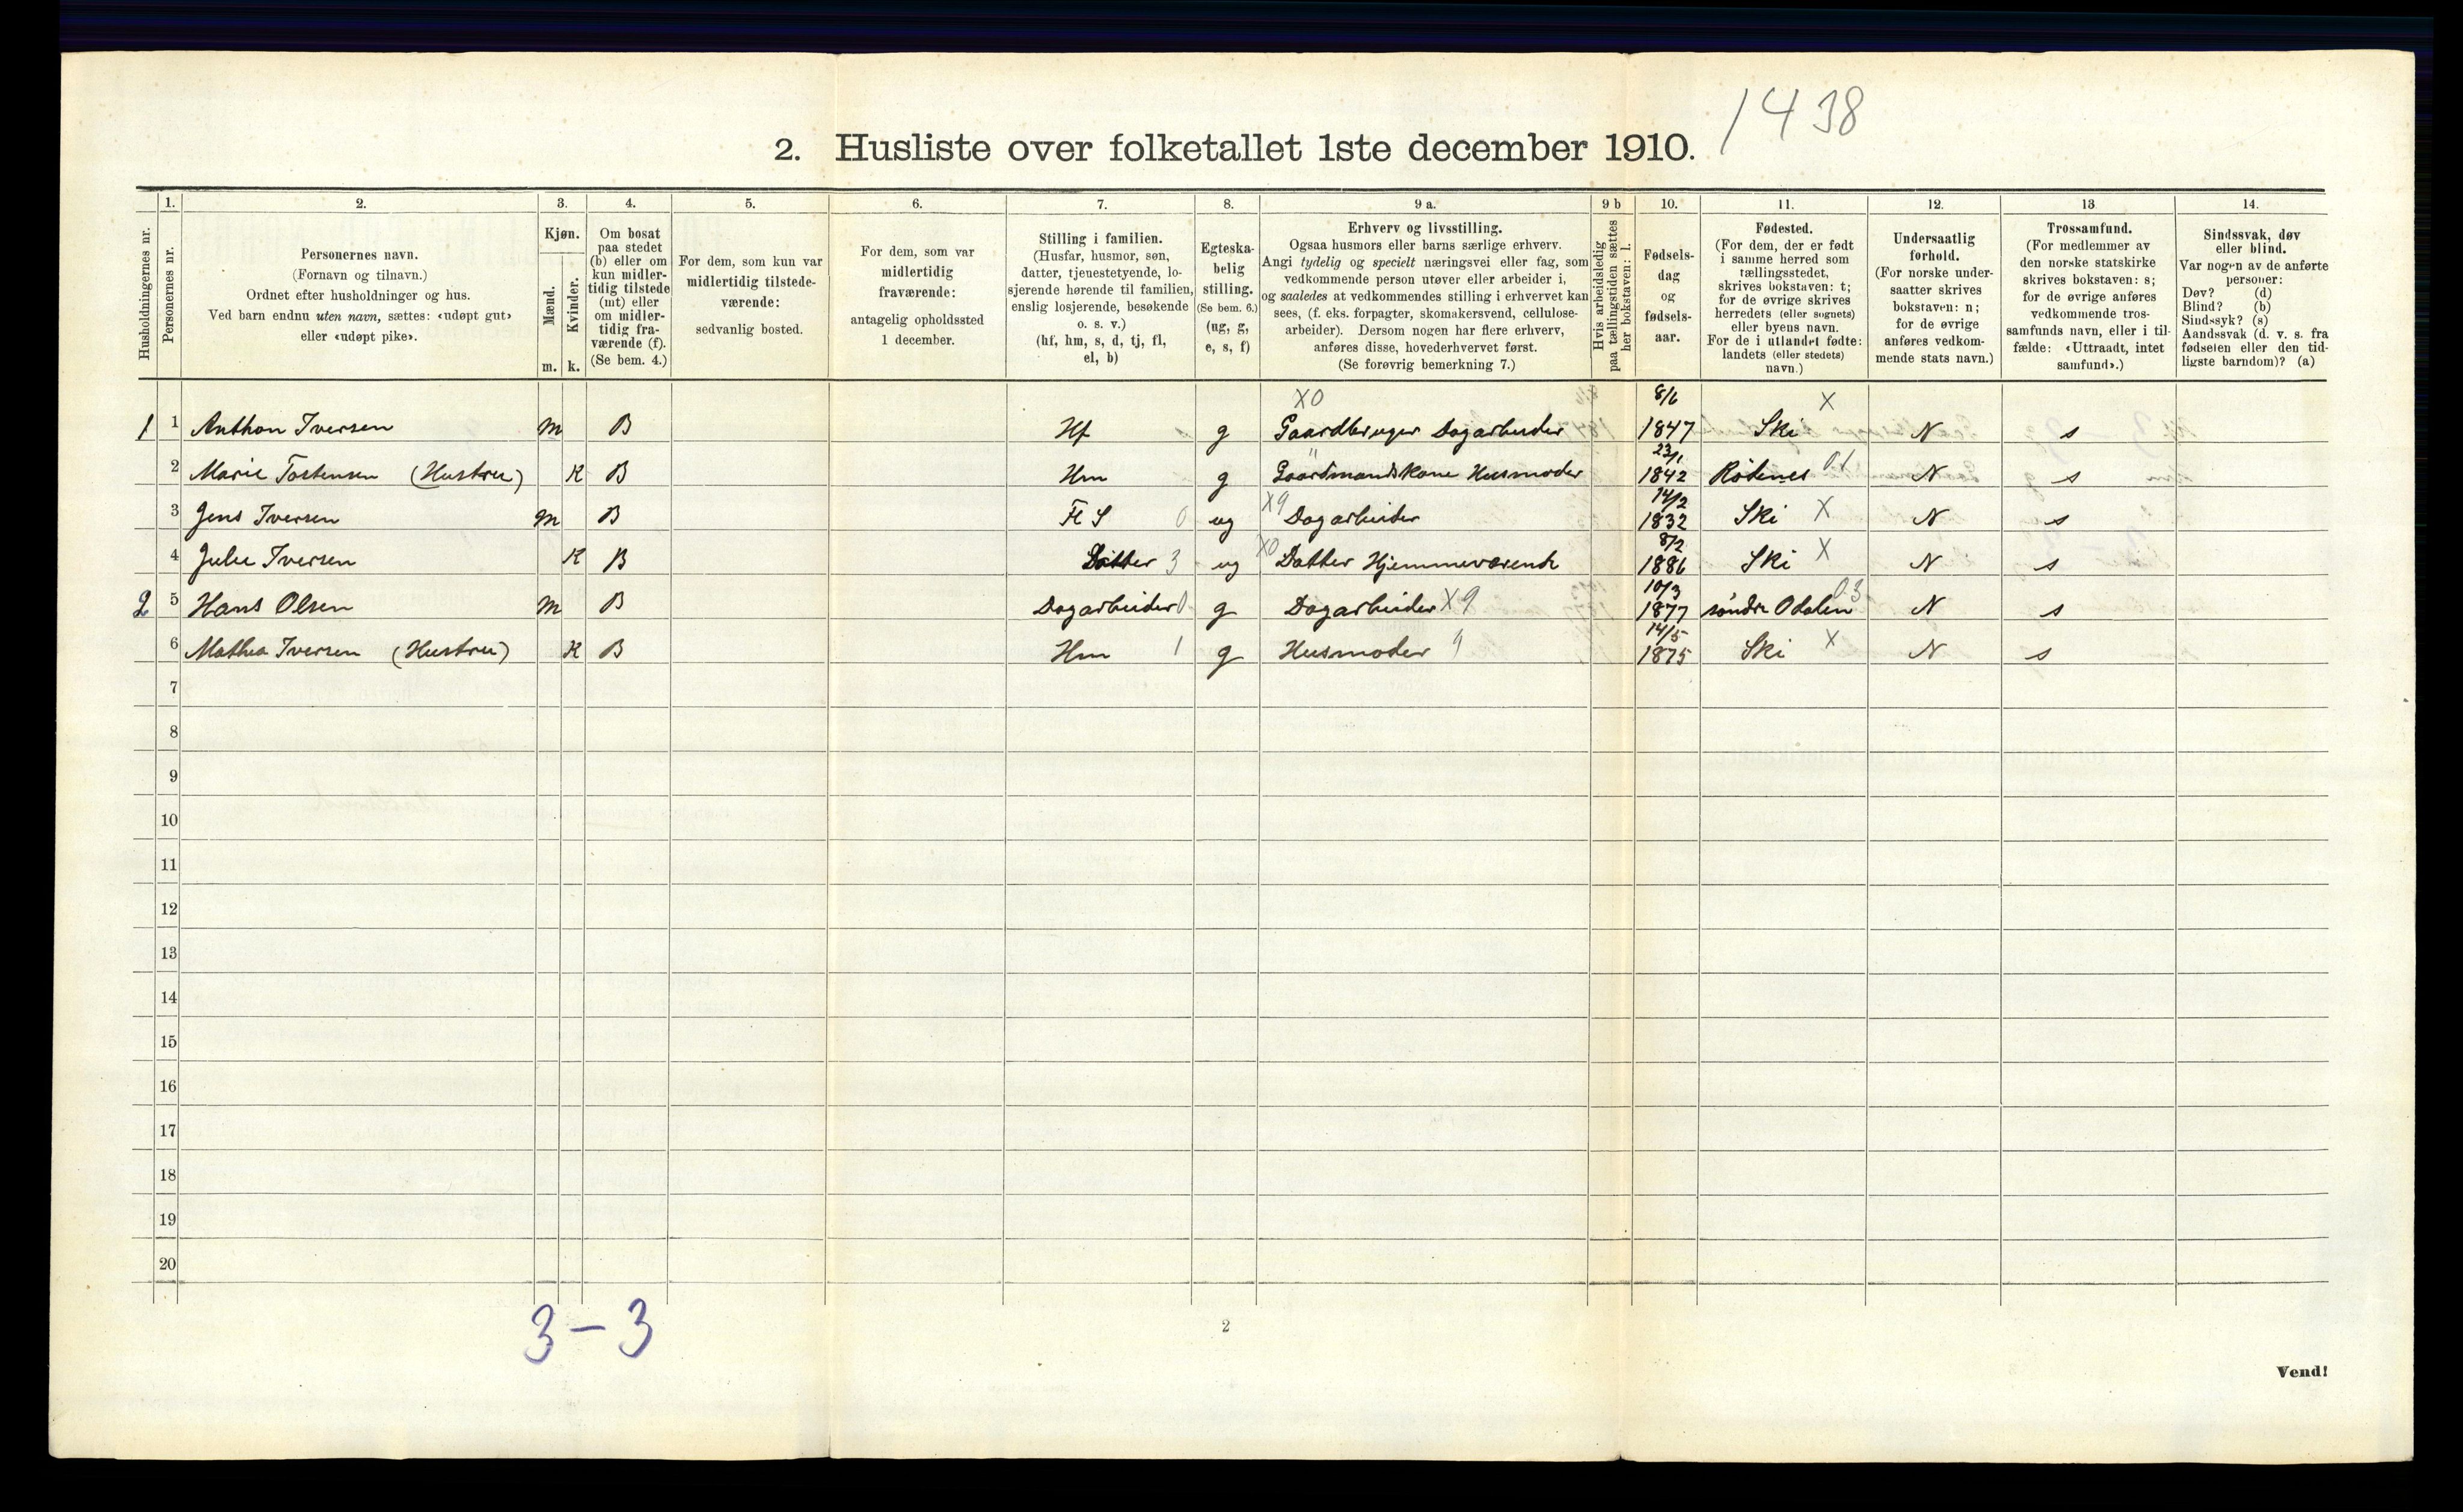 1438
2. Husliste over folketallet 1ste december 1910.
Husholdningernes nr.
1.
Personernes nr.
2.
Personernes navn.
(Fornavn og tilnavn.)
Ordnet efter husholdninger og hus.
Ved barn endnu uten navn, sættes: «udøpt gut»
eller «udøpt pike».
3.
Kjøn.
Mænd.
Kvinder.
m. k.
4.
Om bosat
paa stedet
(b) eller om
kun midler-
tidig tilstede
(mt) eller
om midler-
tidig fra-
værende (f).
(Se bem. 4.)
5.
For dem, som kun var
midlertidig tilstede-
værende:
sedvanlig bosted.
6.
For dem, som var
midlertidig
fraværende:
antagelig opholdssted
1 december.
7.
Stilling i familien.
(Husfar, husmor, søn,
datter, tjenestetyende, lo-
sjerende hørende til familien,
enslig losjerende, besøkende
o. s. v.)
(hf, hm, s, d, tj, fl,
el, b)
8.
Egteska-
belig
stilling.
(Se bem. 6.)
(ug, g,
e, s, f)
9 a.
Erhverv og livsstilling.
Ogsaa husmors eller barns særlige erhverv.
Angi tydelig og specielt næringsvei eller fag, som
vedkommende person utøver eller arbeider i,
og saaledes at vedkommendes stilling i erhvervet kan
sees, (f. eks. forpagter, skomakersvend, cellulose-
arbeider). Dersom nogen har flere erhverv,
anføres disse, hovederhvervet først.
(Se forøvrig bemerkning 7.)
9 b
Hvis arbeidsledig
paa tællingstiden sættes
her bokstaven: l.
10.
Fødsels-
dag
og
fødsels-
aar.
11.
Fødested.
(For dem, der er født
i samme herred som
tællingsstedet,
skrives bokstaven: t;
for de øvrige skrives
herredets (eller sognets)
eller byens navn.
For de i utlandet fødte:
landets (eller stedets)
navn.)
12.
Undersaatlig
forhold.
(For norske under-
saatter skrives
bokstaven: n;
for de øvrige
anføres vedkom-
mende stats navn.)
13
Trossamfund.
(For medlemmer av
den norske statskirke
skrives bokstaven: s;
for de øvrige anføres
vedkommende tros-
samfunds navn, eller i til-
fælde: «Uttraadt, intet
samfund».)
14.
Sindssvak, døv
eller blind.
Var nogen av de anførte
personer:
Døv? (d)
Blind? (b)
Sindssyk? (s)
Aandssvak (d. v. s. fra
fødselen eller den tid-
ligste barndom)? (a)
X0 8/6 X
1 1 Anthon Iversen m B Hf g Gaardbruger Dagarbeider 1847 Ski N s
23/1
2 Marie Tostensen (Hustru) K B Hm g Gaardmandskone Husmoder 1842 Rødenes 01 N s
14/2
3 Jens Iversen m B Fl S 0 ug X9 Dagarbeider 1832 Ski X N s
8/2
4 Julie Iversen K B Datter 3 ug X0 Datter Hjemmeværende 1886 Ski X N s
10/3
2 5 Hans Olsen m B Dagarbeider 0 g Dagarbeider X9 1877 søndre Odalen 03 N s
14/5
6 Mathea Iversen (Hustru) K B Hm 1 g Husmoder 9 1875 Ski X N s
7
8
9
10
11
12
13
14
15
16
17
18
19
20
3 – 3
2
Vend!